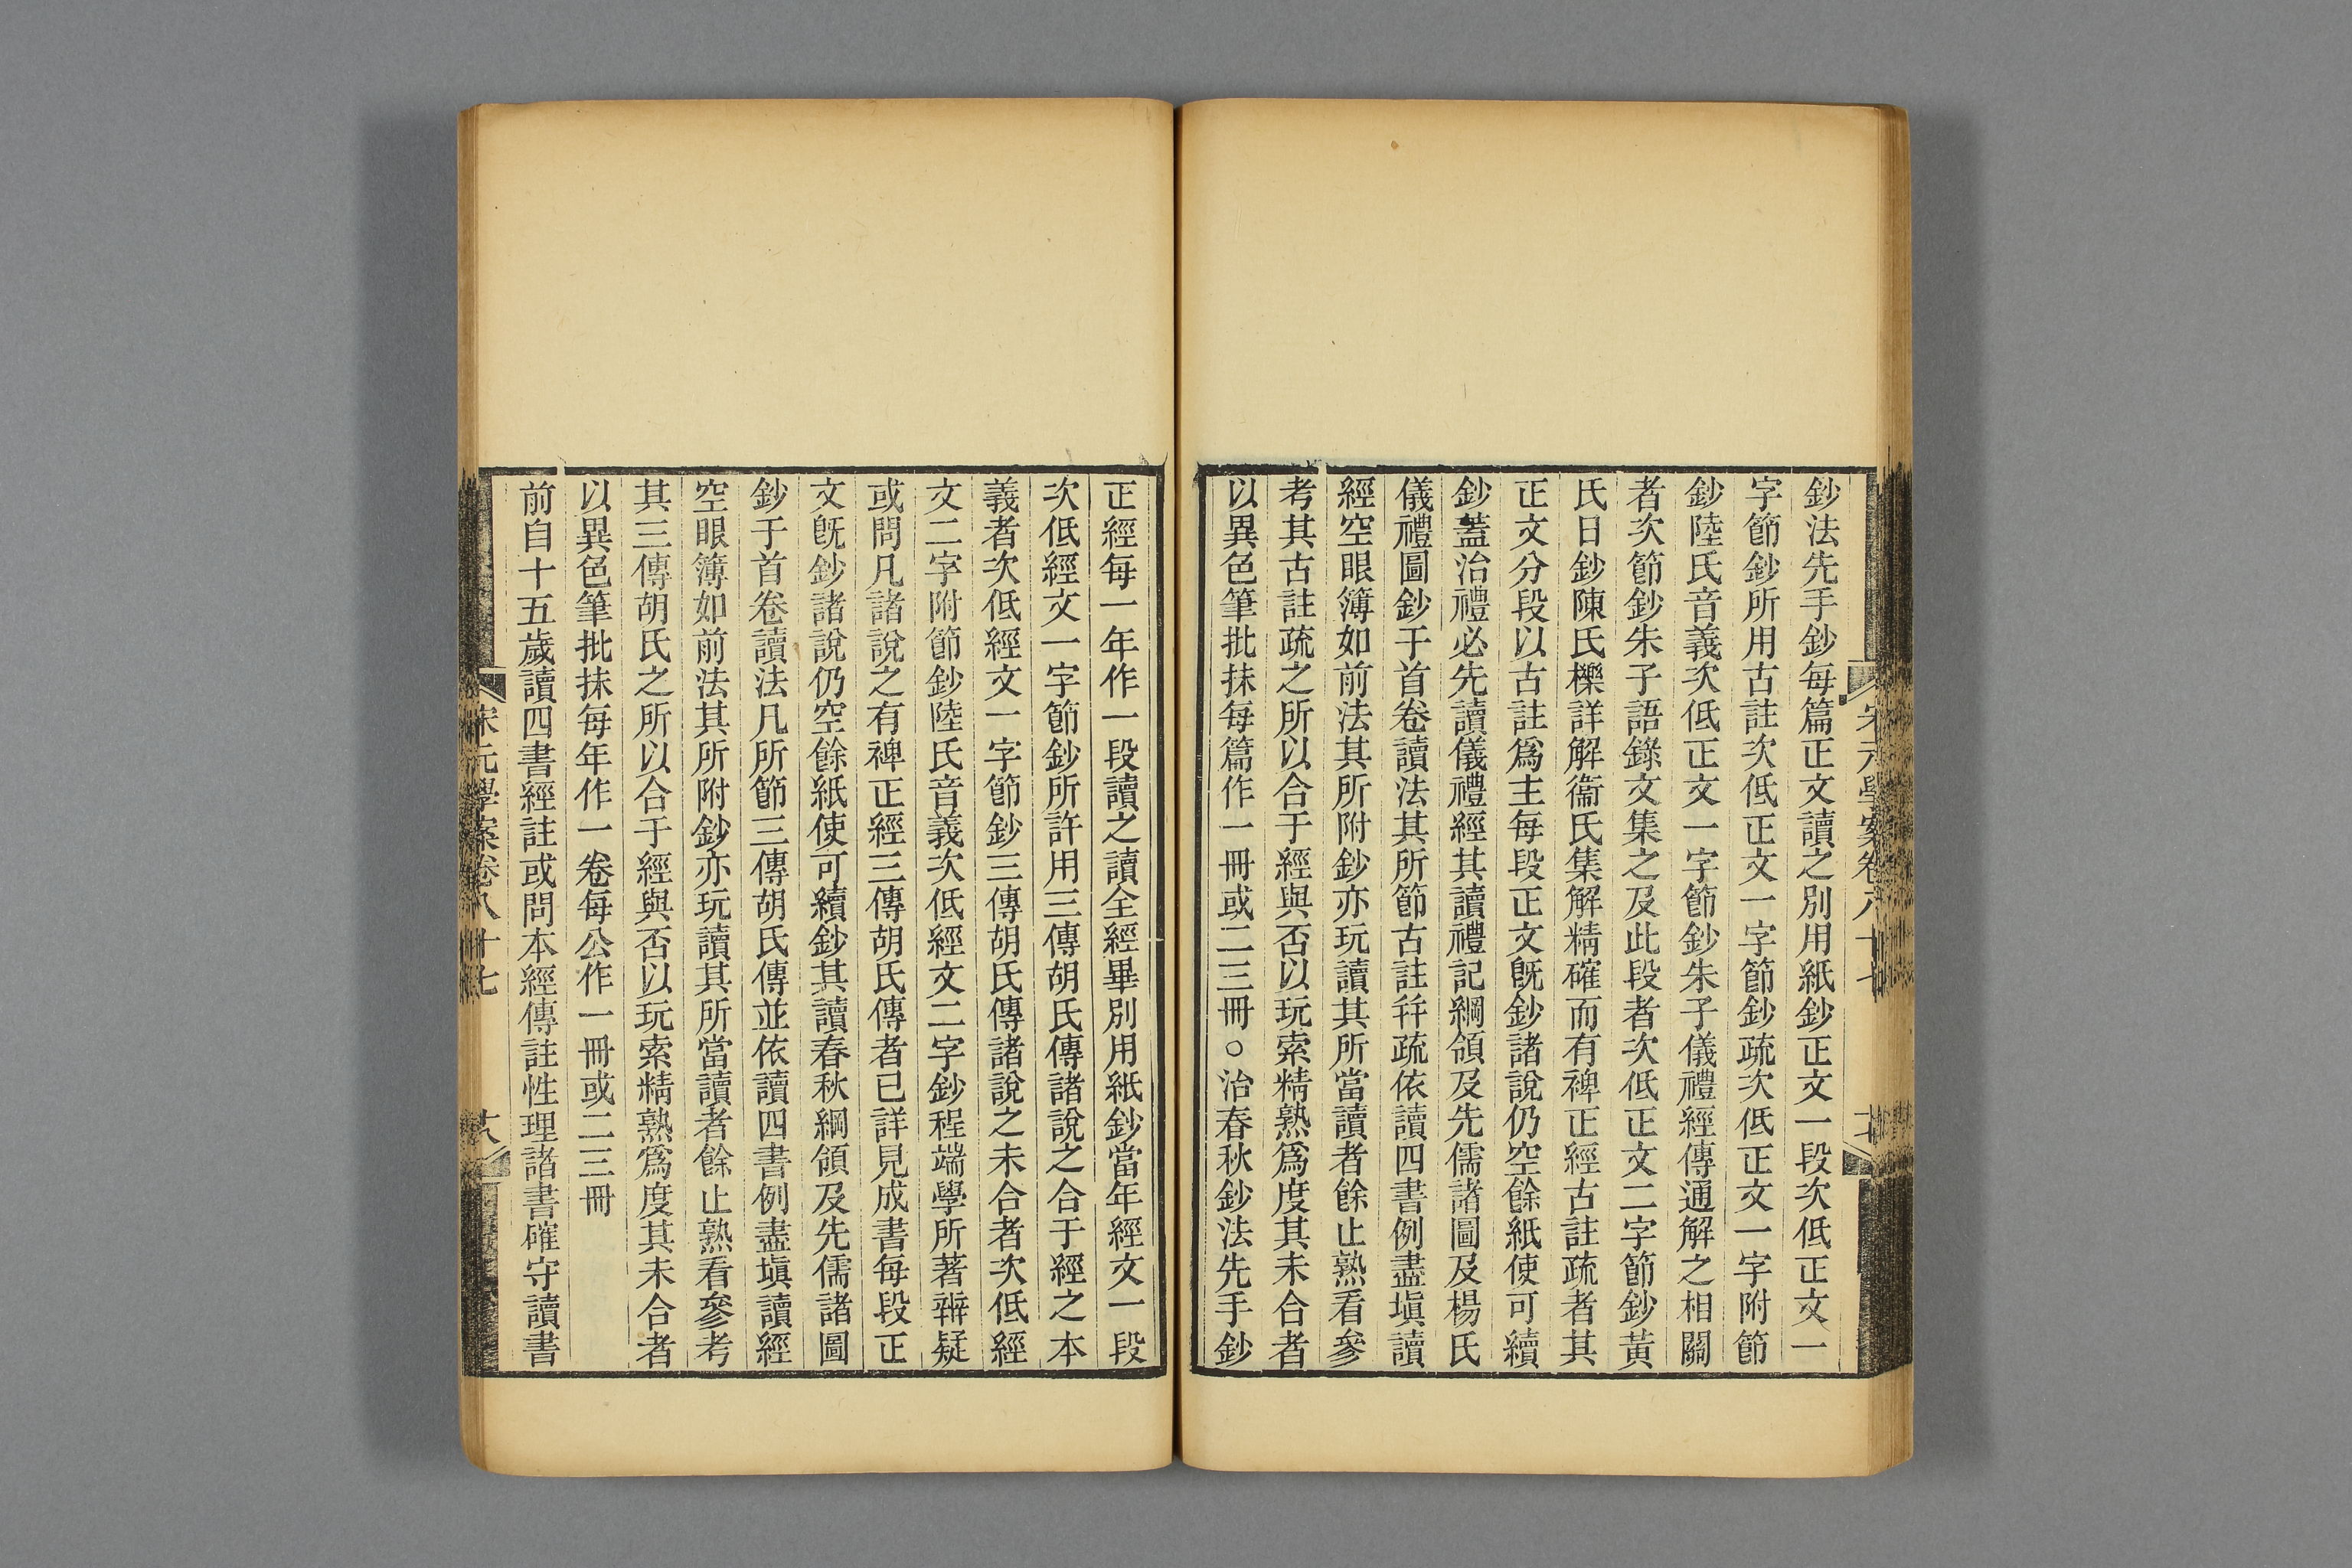 鈔法先手鈔每篇正文讀之別用紙鈔正文一段次低正文一
字節鈔所用古註次低正文一字節鈔疏次低正文一字附節
鈔陸氏音義次低正文一字節鈔朱子儀禮經傳通解之相關
者次節鈔朱子語錄文集之及此段者次低正文二字節鈔黃
氏日鈔陳氏櫟詳解衞氏集解精確而有裨正經古註疏者其
正文分段以古註爲主每段正文旣鈔諸說仍空餘紙使可續
鈔蓋治禮必先讀儀禮經其讀禮記綱領及先儒諸圖及楊氏
儀禮圖鈔于首卷讀法其所節古註幷疏依讀四書例盡塡讀
經空眼簿如前法其所附鈔亦玩讀其所當讀者餘止熟看參
考其古註疏之所以合于經與否以玩索精熟爲度其未合者
以異色筆批抹每篇作一冊或二三冊○治春秋鈔法先手鈔
正經每一年作一段讀之讀全經畢別用紙鈔當年經文一段
次低經文一字節鈔所許用三傳胡氏傳諸說之合于經之本
義者次低經文一字節鈔三傳胡氏傳諸說之未合者次低經
文二字附節鈔陸氏音義次低經文二字鈔程端學所著辨疑
或問凡諸說之有裨正經三傳胡氏傳者已詳見成書每段正
文旣鈔諸說仍空餘紙使可續鈔其讀春秋綱領及先儒諸圖
鈔于首卷讀法凡所節三傳胡氏傳並依讀四書例盡塡讀經
空眼簿如前法其所附鈔亦玩讀其所當讀者餘止熟看參考
其三傳胡氏之所以合于經與否以玩索精熟爲度其未合者
以異色筆批抹每年作一卷每公作一冊或二三冊
前自十五歲讀四書經註或問本經傳註性理諸書確守讀書
宋元學案卷八十七